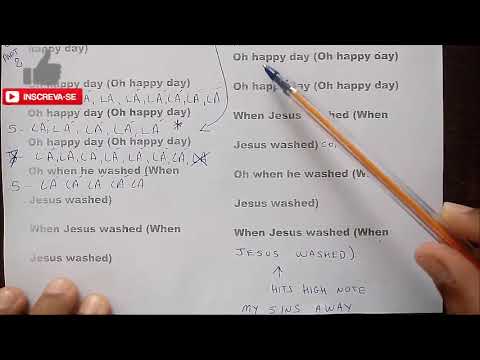 PART
8
happy day)
oh happy day (Oh happy day)
INSCREVA-SE
LA, LA, LA, LA, LA, LA, LA
5 - LA, LA, LA, LA, LA *
Oh happy day (Oh happy day)
7 - LA, LA, LA, LA, LA, LA, LA
Oh when he washed (When
5 - LA LA LA LA LA
Jesus washed)
When Jesus washed (When
Jesus washed)
Oh happy day (Oh happy day)
Oh happy day (Oh happy day)
When Jesus washed (When
Jesus washed)
Oh when he washed (When
Jesus washed)
When Jesus washed (When
JESUS WASHED)
HITS HIGH NOTE
MY SINS AWAY